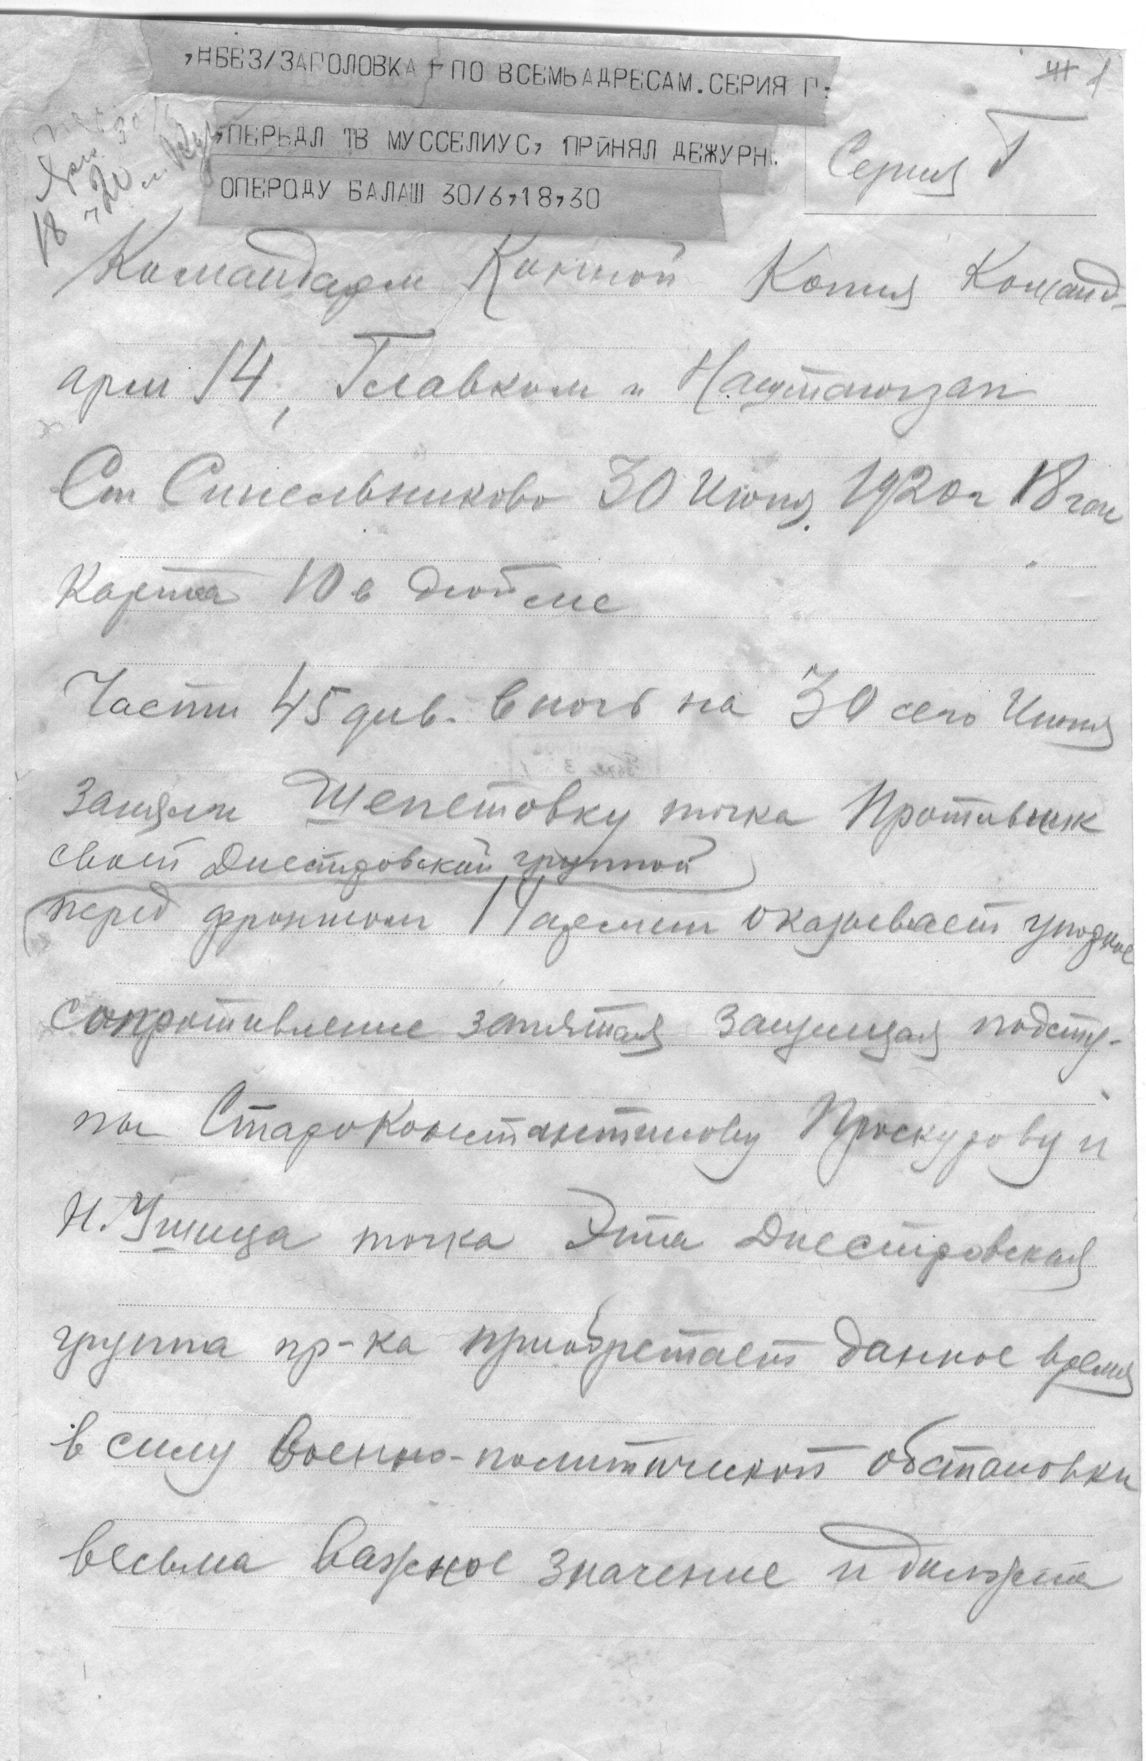 1
,НБЕЗ/ЗАГОЛОВКА + ПО ВСЕМЬАДРЕСАМ.СЕРИЯ Г:
,ПЕРЬДАЛ ТВ МУССЕЛИУС, ПРИНЯЛ ДЕЖУРН.
ОПЕРОДУ БАЛАШ 30/6,18,30
Серия Г
Командарм Конной Копия Команд-
арм 14, Главком и Наштаюгзап
Ст Синельниково 30 Июня 1920 г 18 час
Карта 10 в дюйме
Части 45 див. в ночь на 30 сего Июня
заняли Шепетовку точка Противник
своей Днестровской группой
перед фронтом 14 армии оказывает упорное
сопротивление запятая защищая подсту-
пы Староконстантинову Проскурову и
Н. Ушица точка Эта Днестровская
группа пр-ка приобретает данное время
в силу военно-политической обстановки
весьма важное значение и должна